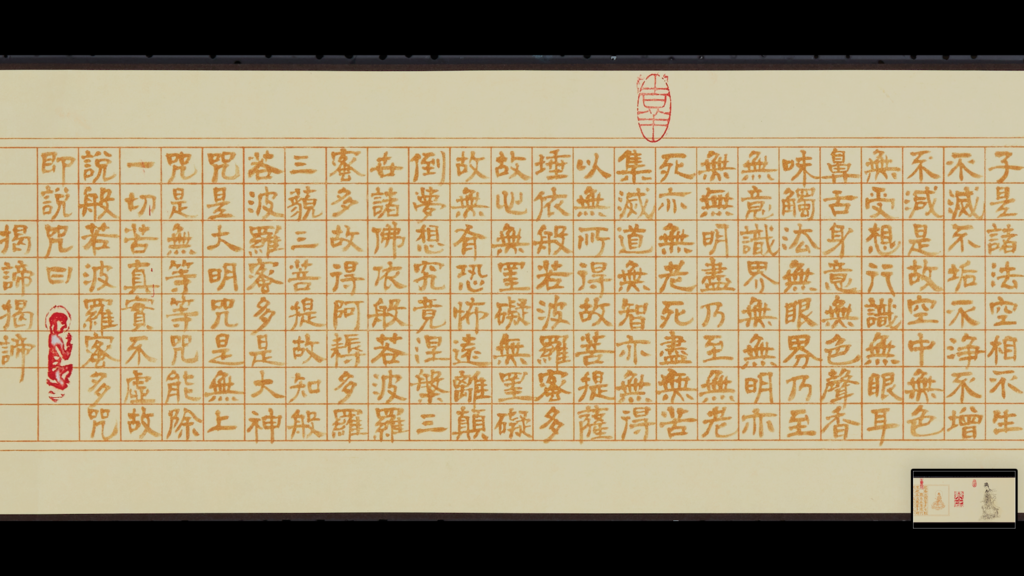 子是諸法空相不生
不滅不垢不淨不增
不減是故空中無色
無受想行識無眼耳
鼻舌身意無色聲香
味觸法無眼界乃至
無意識界無無明亦
無無明盡乃至無老
死亦無老死盡無苦
集滅道無智亦無得
以無所得故菩提薩
埵依般若波羅蜜多
故心無罣礙無罣礙
故無有恐怖遠離顛
倒夢想究竟涅槃三
世諸佛依般若波羅
蜜多故得阿耨多羅
三藐三菩提故知般
若波羅蜜多是大神
咒是大明咒是無上
咒是無等等咒能除
一切苦真實不虛故
說般若波羅蜜多咒
即說咒曰
揭諦揭諦
吉羊